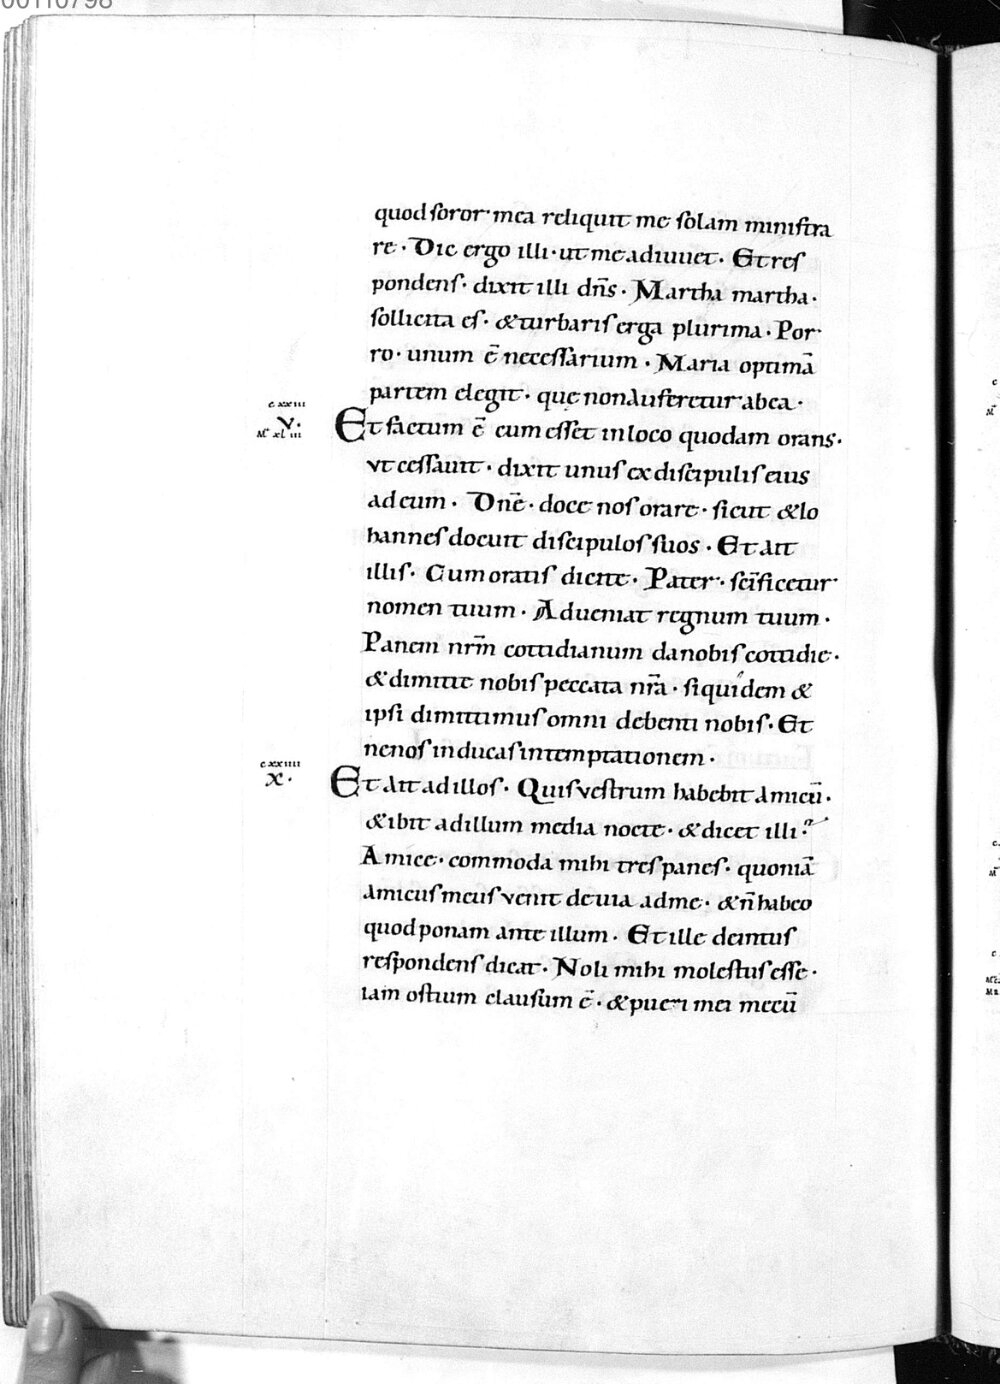 00110798
quod soror mea reliquit me solam ministra
re · Dic ergo illi · ut me adiuuet · Et res
pondens · dixit illi dn̄s · Martha martha ·
sollicita es · & turbaris erga plurima · Por
ro · unum ē necessarium · Maria optimā
partem elegit · quę non auferetur ab ea ·
cxxiii
v.
Mt xliii
Et factum ē cum esset in loco quodam orans ·
vt cessauit · dixit unus ex discipulis eius
ad eum · Dn̄e · doce nos orare · sicut & Io
hannes docuit discipulos suos · Et ait
illis · Cum oratis dicite · Pater · sc̄ificetur
nomen tuum · Adueniat regnum tuum ·
Panem nr̄m cottidianum da nobis cottidie ·
& dimitte nobis peccata nr̄a · siquidem &
ipsi dimittimus omni debenti nobis · Et
ne nos inducas in temptationem ·
cxxiiii
x ·
Et ait ad illos · Quis vestrum habebit amicū ·
& ibit ad illum media nocte · & dicet illi ·
Amice · commoda mihi tres panes · quoniā
amicus meus venit de uia ad me · & n̄ habeo
quod ponam ante illum · Et ille deintus
respondens dicat · Noli mihi molestus esse ·
iam ostium clausum ē · & pueri mei mecū